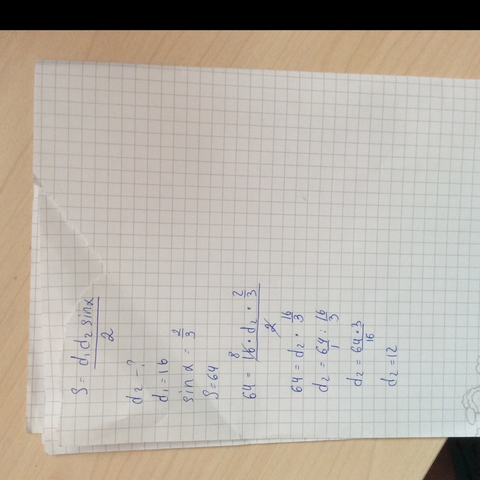 S = d₁d₂ sinα / 2
d₂ - ?
d₁ = 16
sin α = 2/3
S = 64
64 = 16 8 · d₂ · 2/3 / 2
64 = d₂ · 16/3
d₂ = 64/1 : 16/3
d₂ = 64 · 3 / 16
d₂ = 12